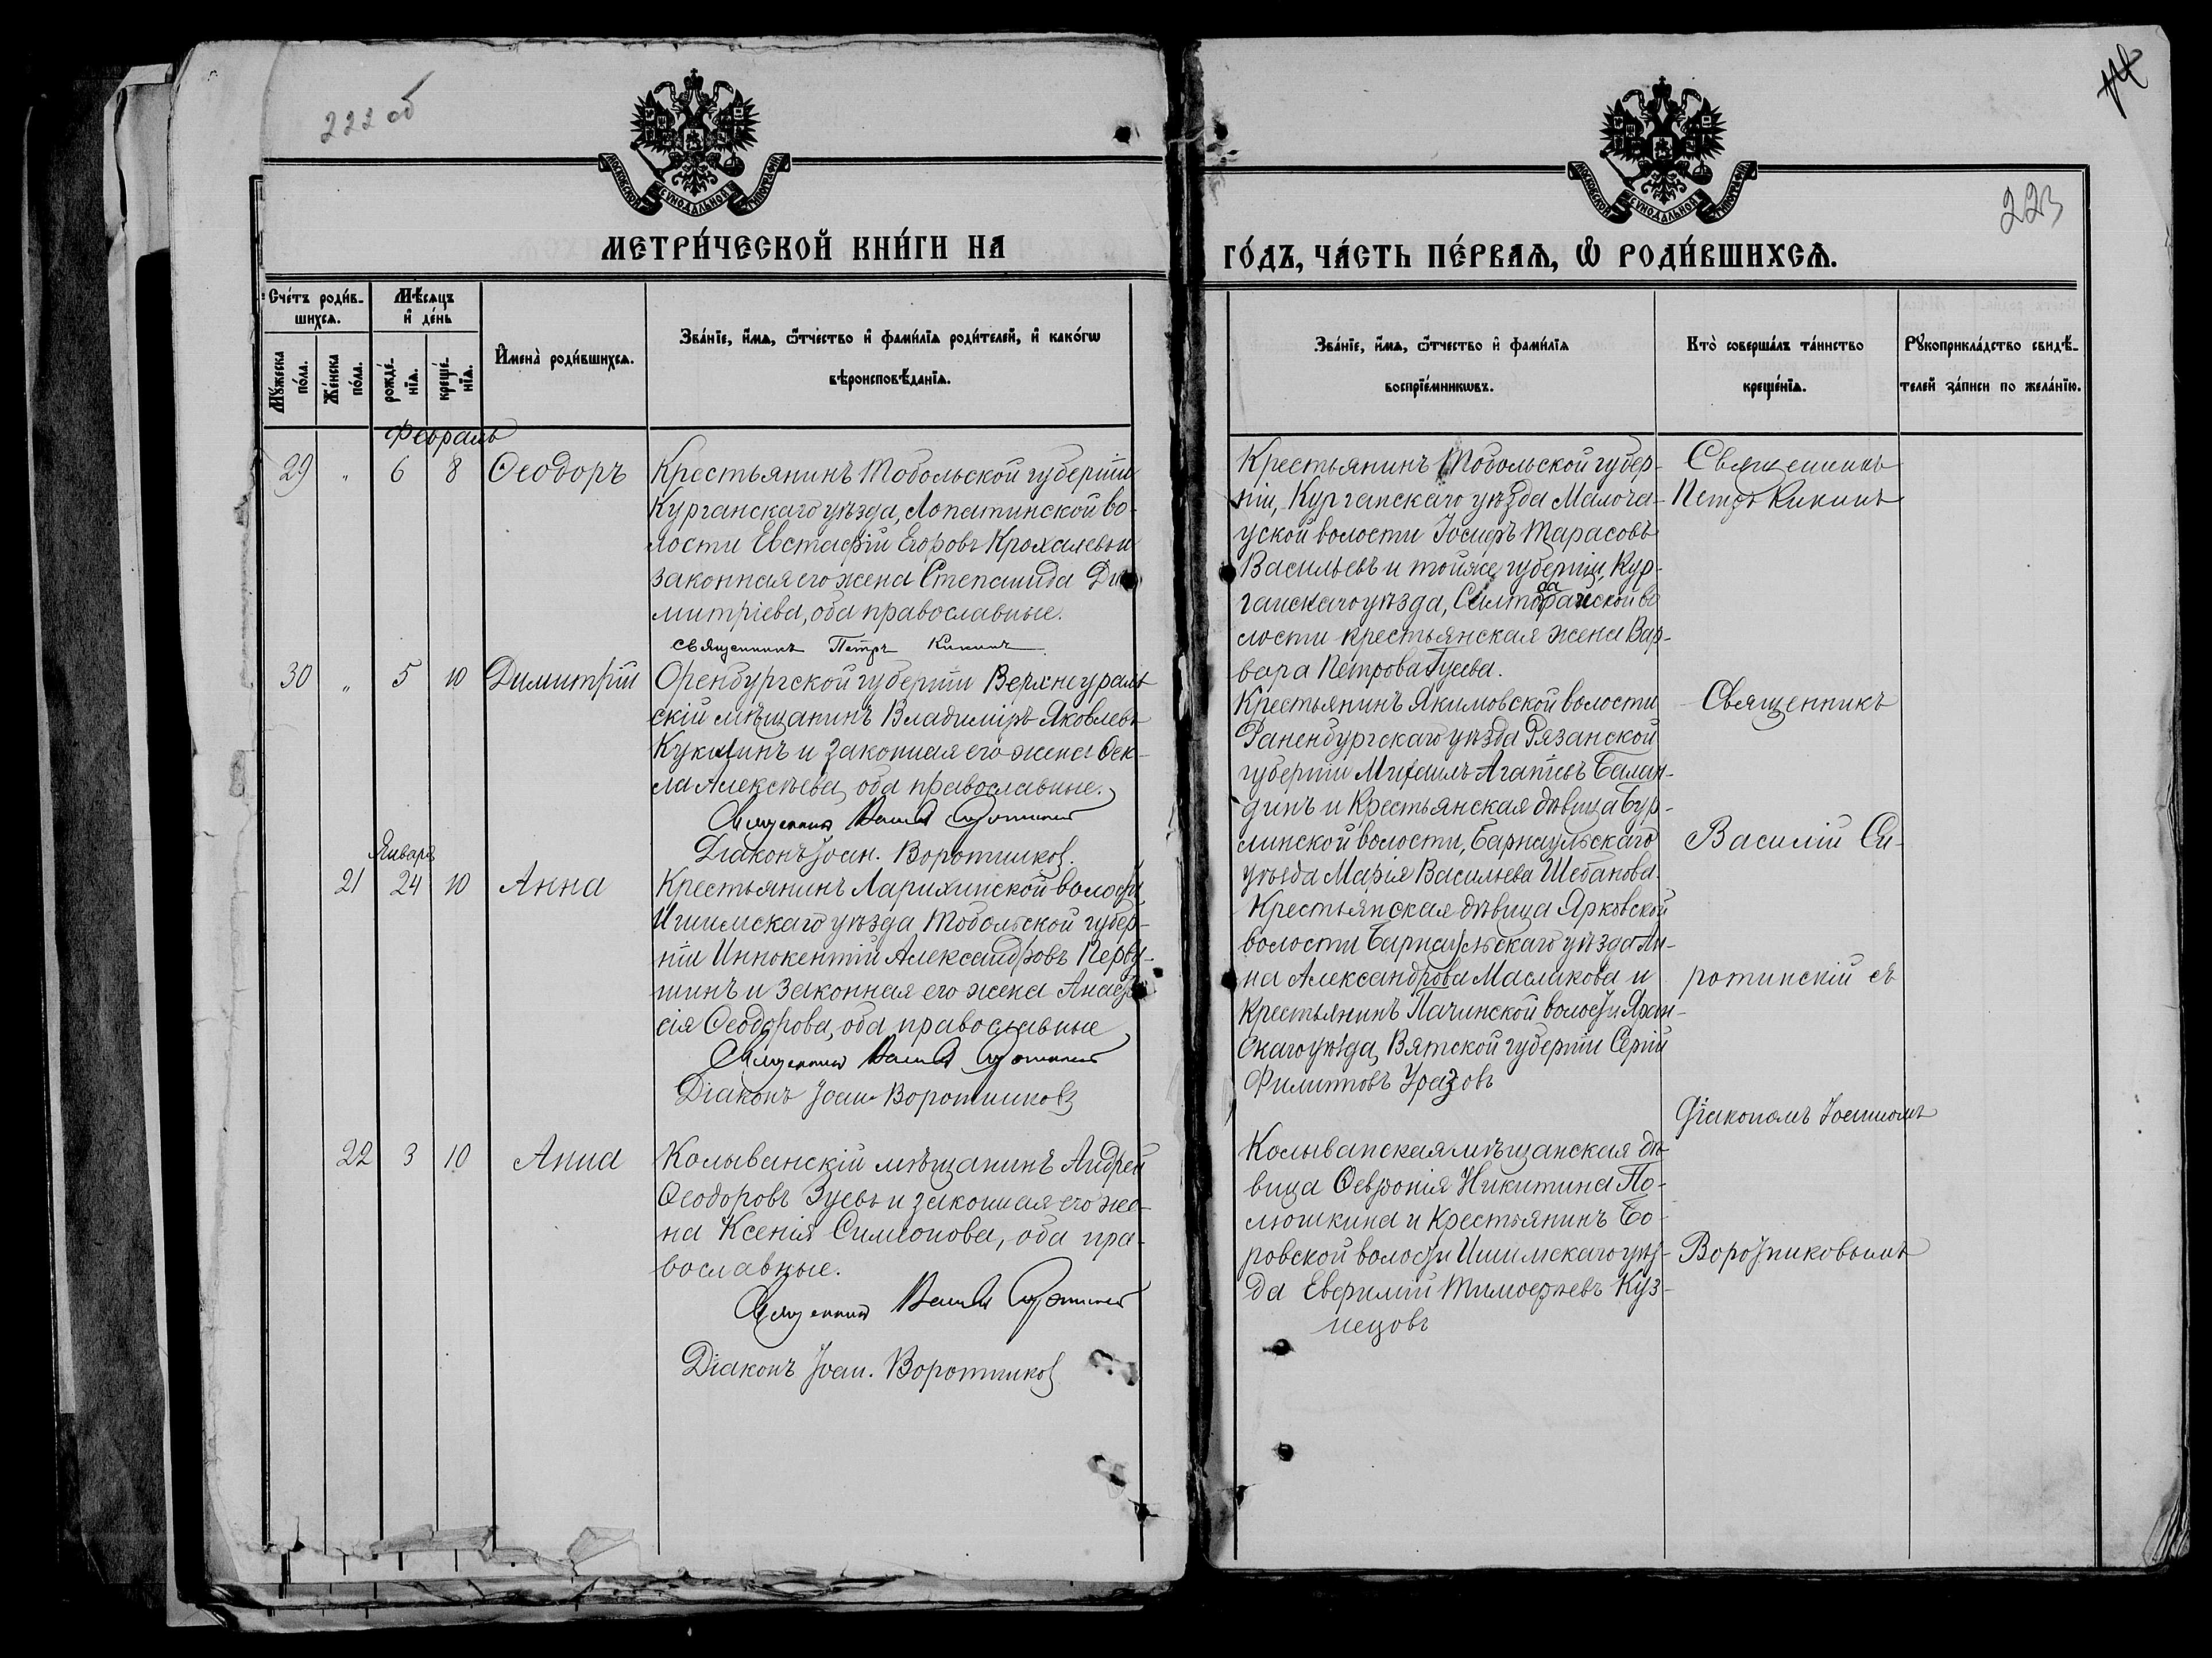 222 об
МОСКОВСКОЙ СѴНОДАЛЬНОЙ ТИПОГРАФІИ
МЕТРИ́ЧЕСКОЙ КНИ́ГИ НА
Сче́тъ роди́в-
шихсѧ.
Мѣ́сѧцъ
и҆ де́нь
И҆мена̀ роди́вшихсѧ.
Зва́нїе, и҆́мѧ, ѻ҆́тчество и҆ фами́лїѧ роди́телей, и҆ како́гѡ
вѣроисповѣ́данїѧ.
Мꙋ́жеска
по́ла.
Же́нска
по́ла.
рожде́-
нїѧ.
креще́-
нїѧ.
Февраль
29 " 6 8 Ѳеодоръ
Крестьянинъ Тобольской губерніи
Курганскаго уѣзда, Лопатинской во-
лости Евстафій Егоровъ Крохалевъ и
законная его жена Степанида Ди-
митріева, оба православные.
священникъ Петръ Кикинъ
30 " 5 10 Димитрій
Оренбургской губерніи Верхнеураль-
скій мѣщанинъ Владиміръ Яковлевъ
Куклинъ и законная его жена Ѳек-
ла Алексѣева, оба православные.
Священникъ
Діаконъ Іоан. Воротниковъ.
Январь
21 24 10 Анна
Крестьянинъ Ларихинской волости,
Ишимскаго уѣзда Тобольской губер-
ніи Иннокентій Александровъ Перву-
шинъ и законная его жена Анаста-
сія Ѳеодорова, оба православные
Священникъ
Діаконъ Іоан Воротниковъ
22 3 10 Анна
Колыванскій мѣщанинъ Андрей
Ѳеодоровъ Зуевъ и законная его же-
на Ксенія Симеонова, оба пра-
вославные.
Священникъ
Діаконъ Іоан. Воротниковъ
МОСКОВСКОЙ СѴНОДАЛЬНОЙ ТИПОГРАФІИ
223
ГО́ДЪ, ЧА́СТЬ ПЕ́РВАѦ, Ѡ҆ РОДИ́ВШИХСѦ.
Зва́нїе, и҆́мѧ, ѻ҆́тчество и҆ фами́лїѧ
воспрїе́мникѡвъ.
Кто̀ соверша́лъ та́инство
креще́нїѧ.
Рꙋкоприкла́дство свидѣ́-
телей за́писи по жела́нїю.
Крестьянинъ Тобольской губер-
ніи, Курганскаго уѣзда Малоча-
уской волости Іосифъ Тарасовъ
Васильевъ и той же губерніи, Кур-
ганскаго уѣзда, во-
лости крестьянская жена Вар-
вара Петрова Гусева.
Священникъ
Петръ Кикинъ
Крестьянинъ Якимовской волости
Раненбургскаго уѣзда Рязанской
губерніи Михаилъ Агапіевъ Балан-
динъ и Крестьянская дѣвица Бур-
линской волости, Барнаульскаго
уѣзда Марія Васильева Шебанова.
Крестьянская дѣвица Ярковской
волости Барнаульскаго уѣзда Ан-
на Александрова Маслакова и
Крестьянинъ Пачинской волости Яран-
скаго уѣзда, Вятской губерніи Сергій
Филипповъ Уразовъ
Колыванская мѣщанская дѣ-
вица Ѳевронія Никитина По-
люшкина и Крестьянинъ Бо-
ровской волости Ишимскаго уѣз-
да Евфимій Тимофеевъ Куз-
нецовъ
Священникъ
Василій Си-
ротинскій съ
Діакономъ Іоанномъ
Воротниковымъ